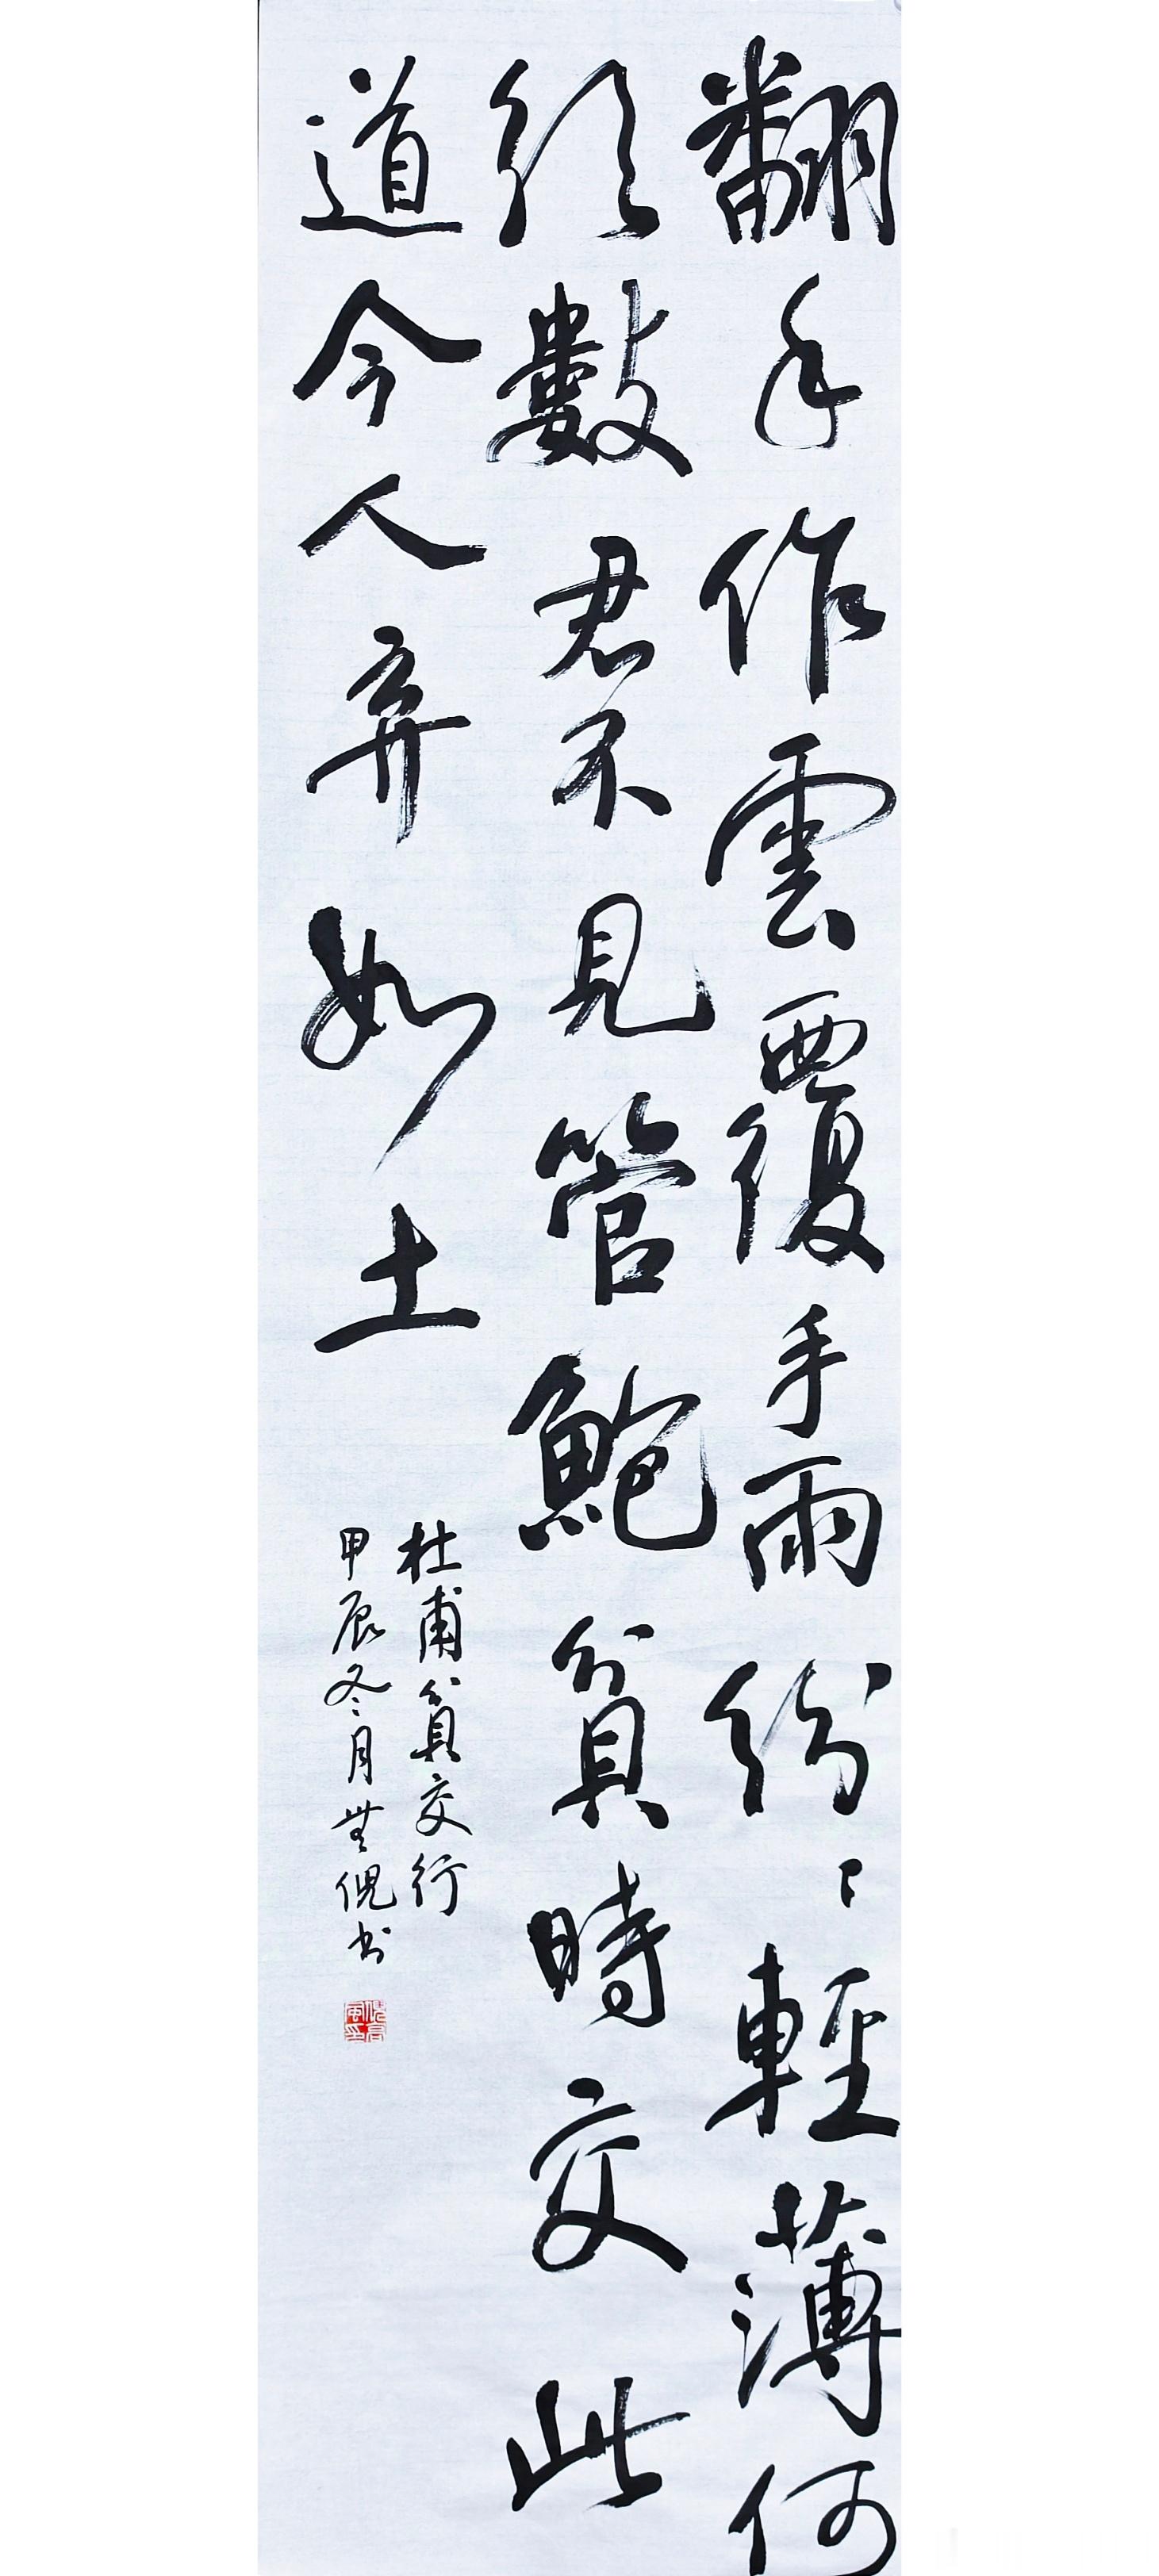 翻手作雲覆手雨紛〻輕薄何
須數君不見管鮑貧時交此
道今人弃如土
杜甫貧交行
甲辰冬月世倪书